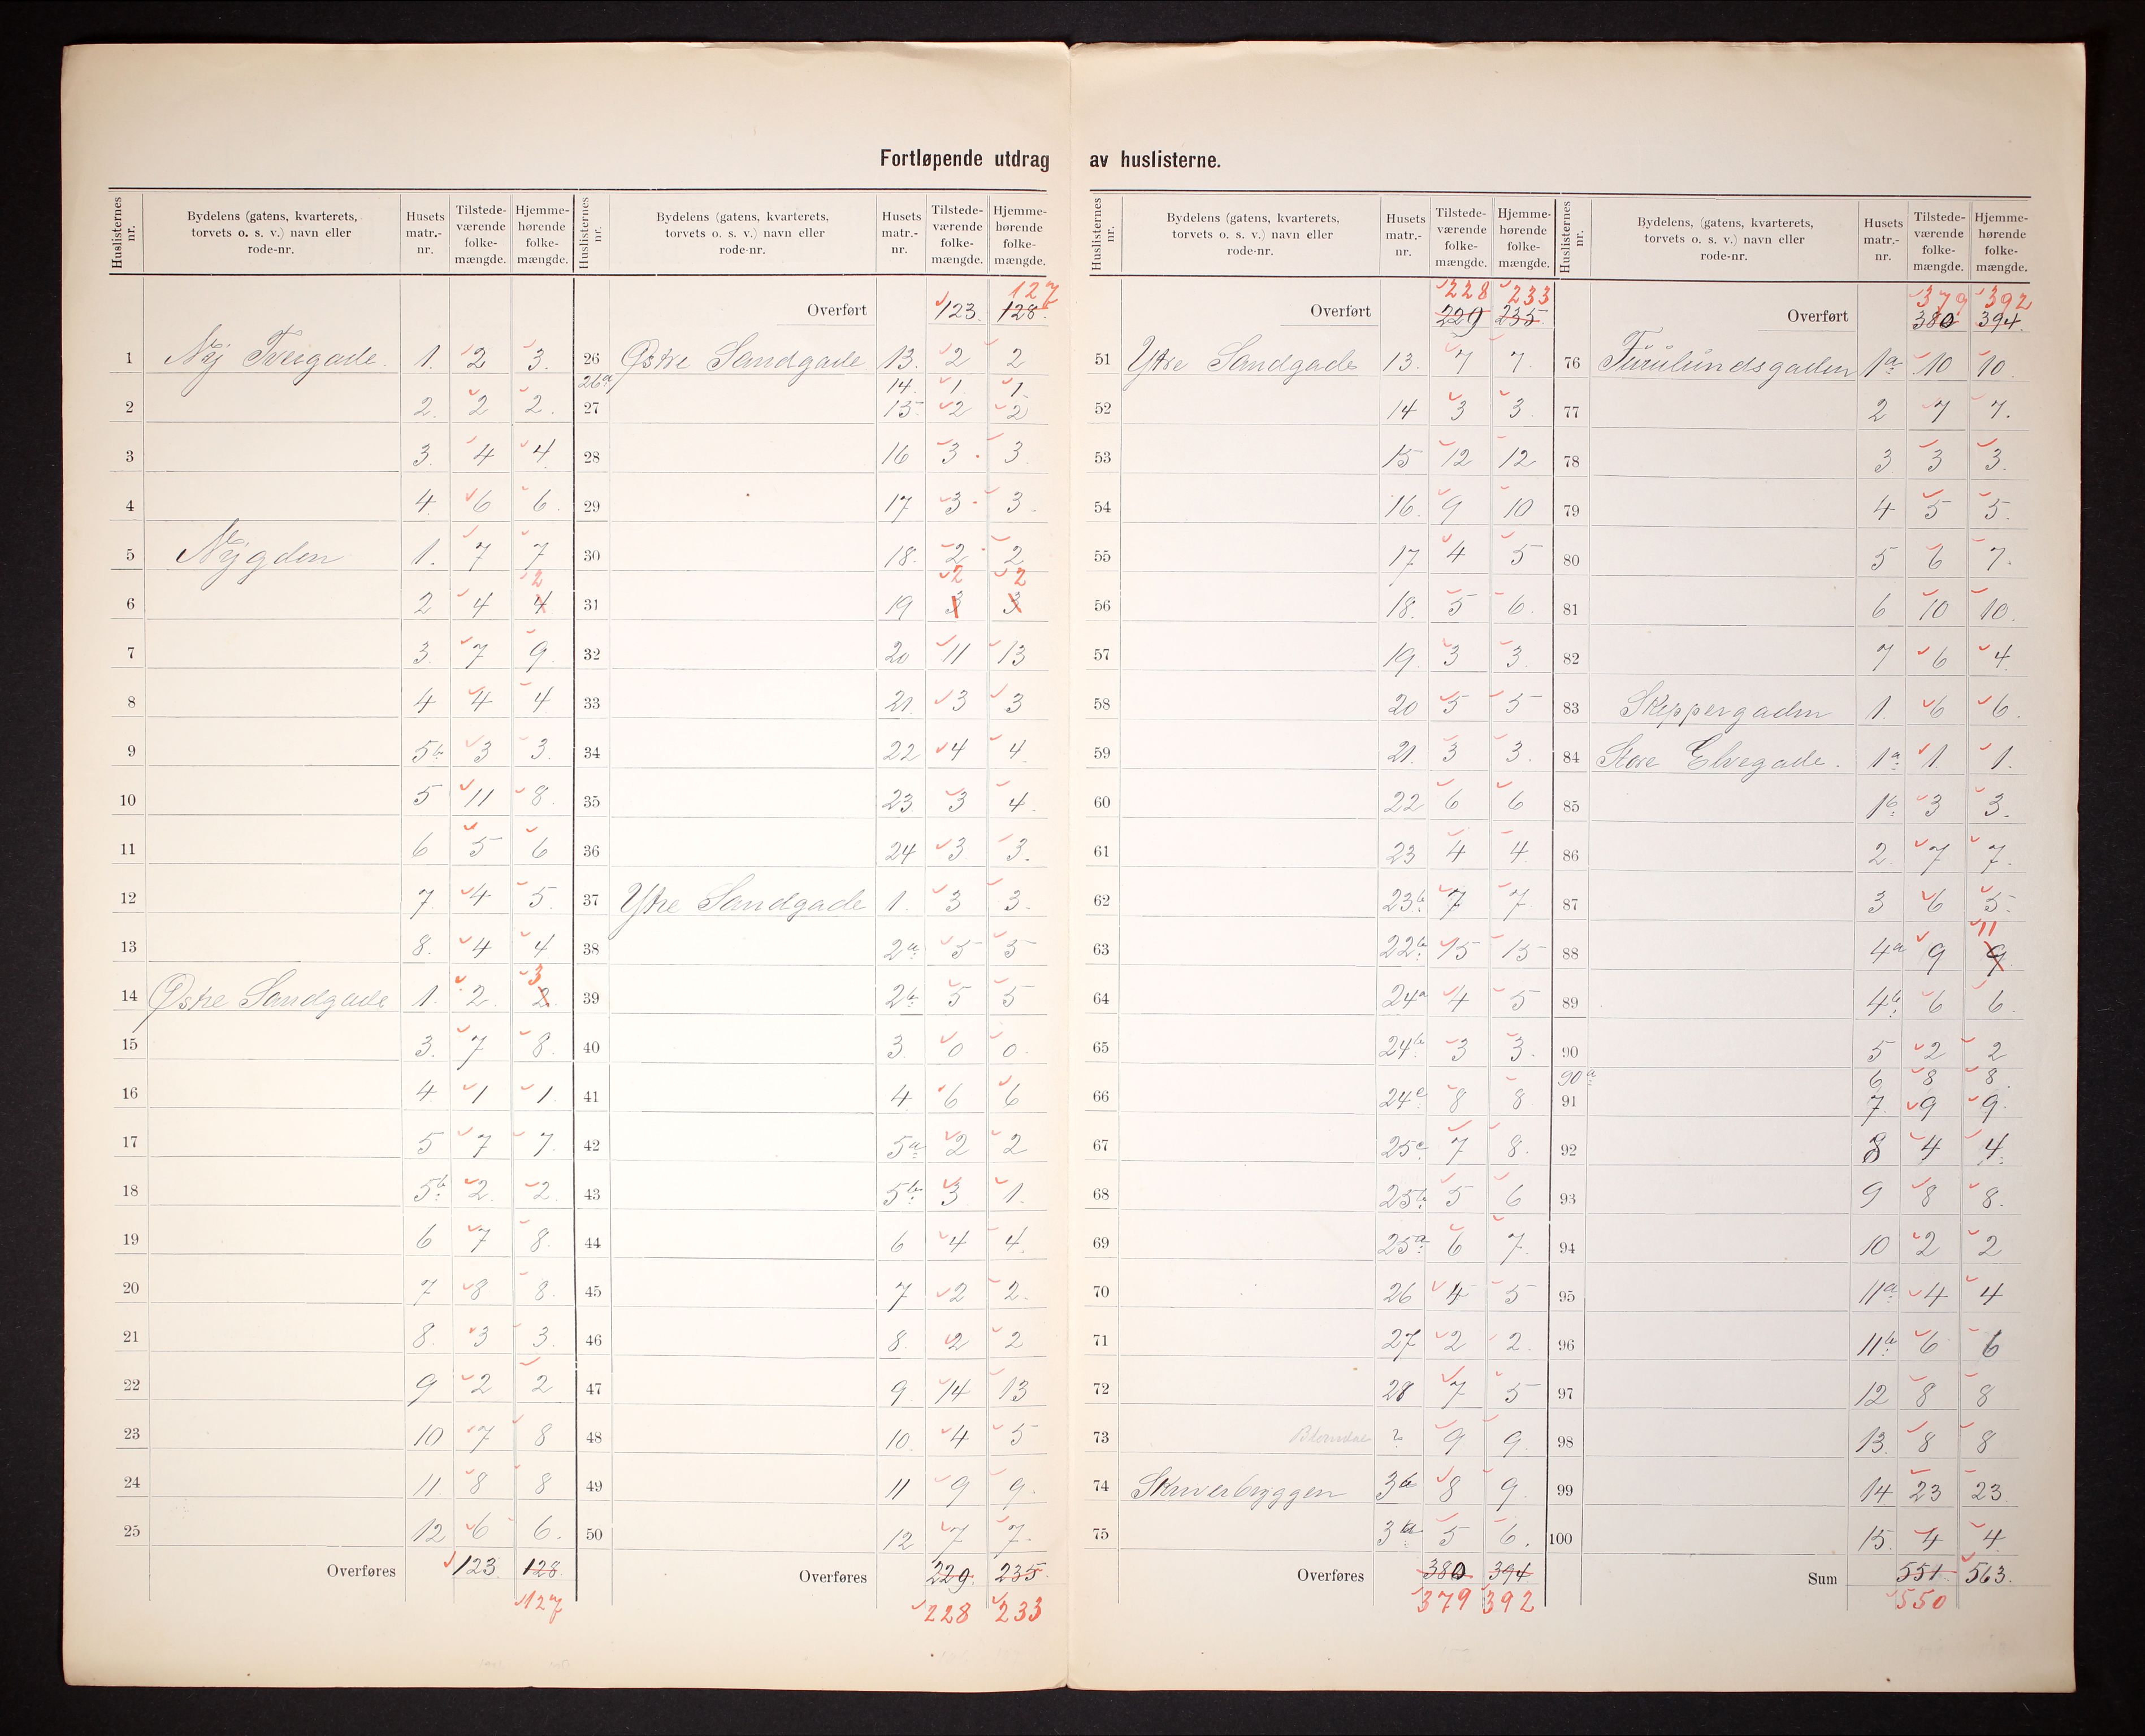 Fortløpende utdrag av huslisterne.
Huslisternes nr. | Bydelens (gatens, kvarterets, torvets o. s. v.) navn eller rode-nr. | Husets matr.-nr. | Tilstede-værende folke-mængde. | Hjemme-hørende folke-mængde.
1 Nÿ Tveigade. 1. 2 3.
2 2. 2 2.
3 3. 4 4
4 4. 6 6.
5 Nÿgden 1. 7 7
6 2 4 4 2
7 3. 7 9.
8 4 4 4
9 5b. 3 3.
10 5 11 8.
11 6 5 6
12 7 4 5.
13 8. 4 4
14 Østre Sandgade 1. 2. 2. 3
15 3. 7 8.
16 4. 1 1.
17 5 7 7.
18 5b. 2. 2.
19 6 7 8.
20 7 8 8.
21 8. 3 3.
22 9 2 2
23 10 7 8
24 11. 8 8
25 12 6 6.
Overføres 123. 128. 127
Huslisternes nr. | Bydelens (gatens, kvarterets, torvets o. s. v.) navn eller rode-nr. | Husets matr.-nr. | Tilstede-værende folke-mængde. | Hjemme-hørende folke-mængde.
Overført 123. 128. 127
26 Østre Sandgade 13. 2 2
26a 14. 1. 1.
27 15 2 2
28 16 3 3.
29 17 3 3.
30 18. 2 2
31 19 3 2 3 2
32 20 11 13
33 21. 3 3
34 22 4 4.
35 23. 3 4.
36 24 3 3.
37 Ytre Sandgade 1. 3 3.
38 2a. 5 5
39 2b. 5 5
40 3. 0 0.
41 4. 6 6
42 5a. 2 2
43 5b. 3 1.
44 6 4 4.
45 7 2 2.
46 8. 2 2
47 9. 14 13
48 10. 4 5
49 11 9 9.
50 12 7 7.
Overføres 229. 235. 228 233
Huslisternes nr. | Bydelens (gatens, kvarterets, torvets o. s. v.) navn eller rode-nr. | Husets matr.-nr. | Tilstede-værende folke-mængde. | Hjemme-hørende folke-mængde.
Overført 229 235. 228 233
51 Ytre Sandgade 13. 7 7.
52 14 3 3.
53 15 12 12
54 16. 9 10
55 17 4 5
56 18. 5 6.
57 19. 3 3.
58 20 5 5
59 21. 3 3.
60 22 6 6
61 23 4 4.
62 23b. 7 7.
63 22b. 15 15
64 24a 4 5
65 24b. 3 3.
66 24c 8 8
67 25c 7 8.
68 25b. 5 6
69 25a. 6 7.
70 26 4 5
71 27 2 2.
72 28 7 5
73 ? 9 9.
74 Skriverbryggen 3b 8 9.
75 3a. 5 6.
Overføres 380 394 379 392
Huslisternes nr. | Bydelens, (gatens, kvarterets, torvets o. s. v.) navn eller rode-nr. | Husets matr.-nr. | Tilstede-værende folke-mængde. | Hjemme-hørende folke-mængde.
Overført 380 394. 379 392
76 Furulundsgaden 1a. 10 10.
77 2 7 7.
78 3 3 3.
79 4 5 5.
80 5 6 7.
81 6 10 10.
82 7 6 4.
83 Skippergaden 1. 6 6.
84 Store Elvegade. 1a. 1. 1.
85 1b. 3 3.
86 2. 7 7.
87 3 6 5.
88 4a 9 9. 11
89 4b. 6 6.
90 5 2 2
90a. 6 8 8.
91 7. 9 9.
92 8 4 4.
93 9 8 8.
94 10 2 2
95 11a. 4 4
96 11b. 6 6
97 12 8 8
98 13. 8 8
99 14 23 23.
100 15. 4 4.
Sum 551. 563. 550